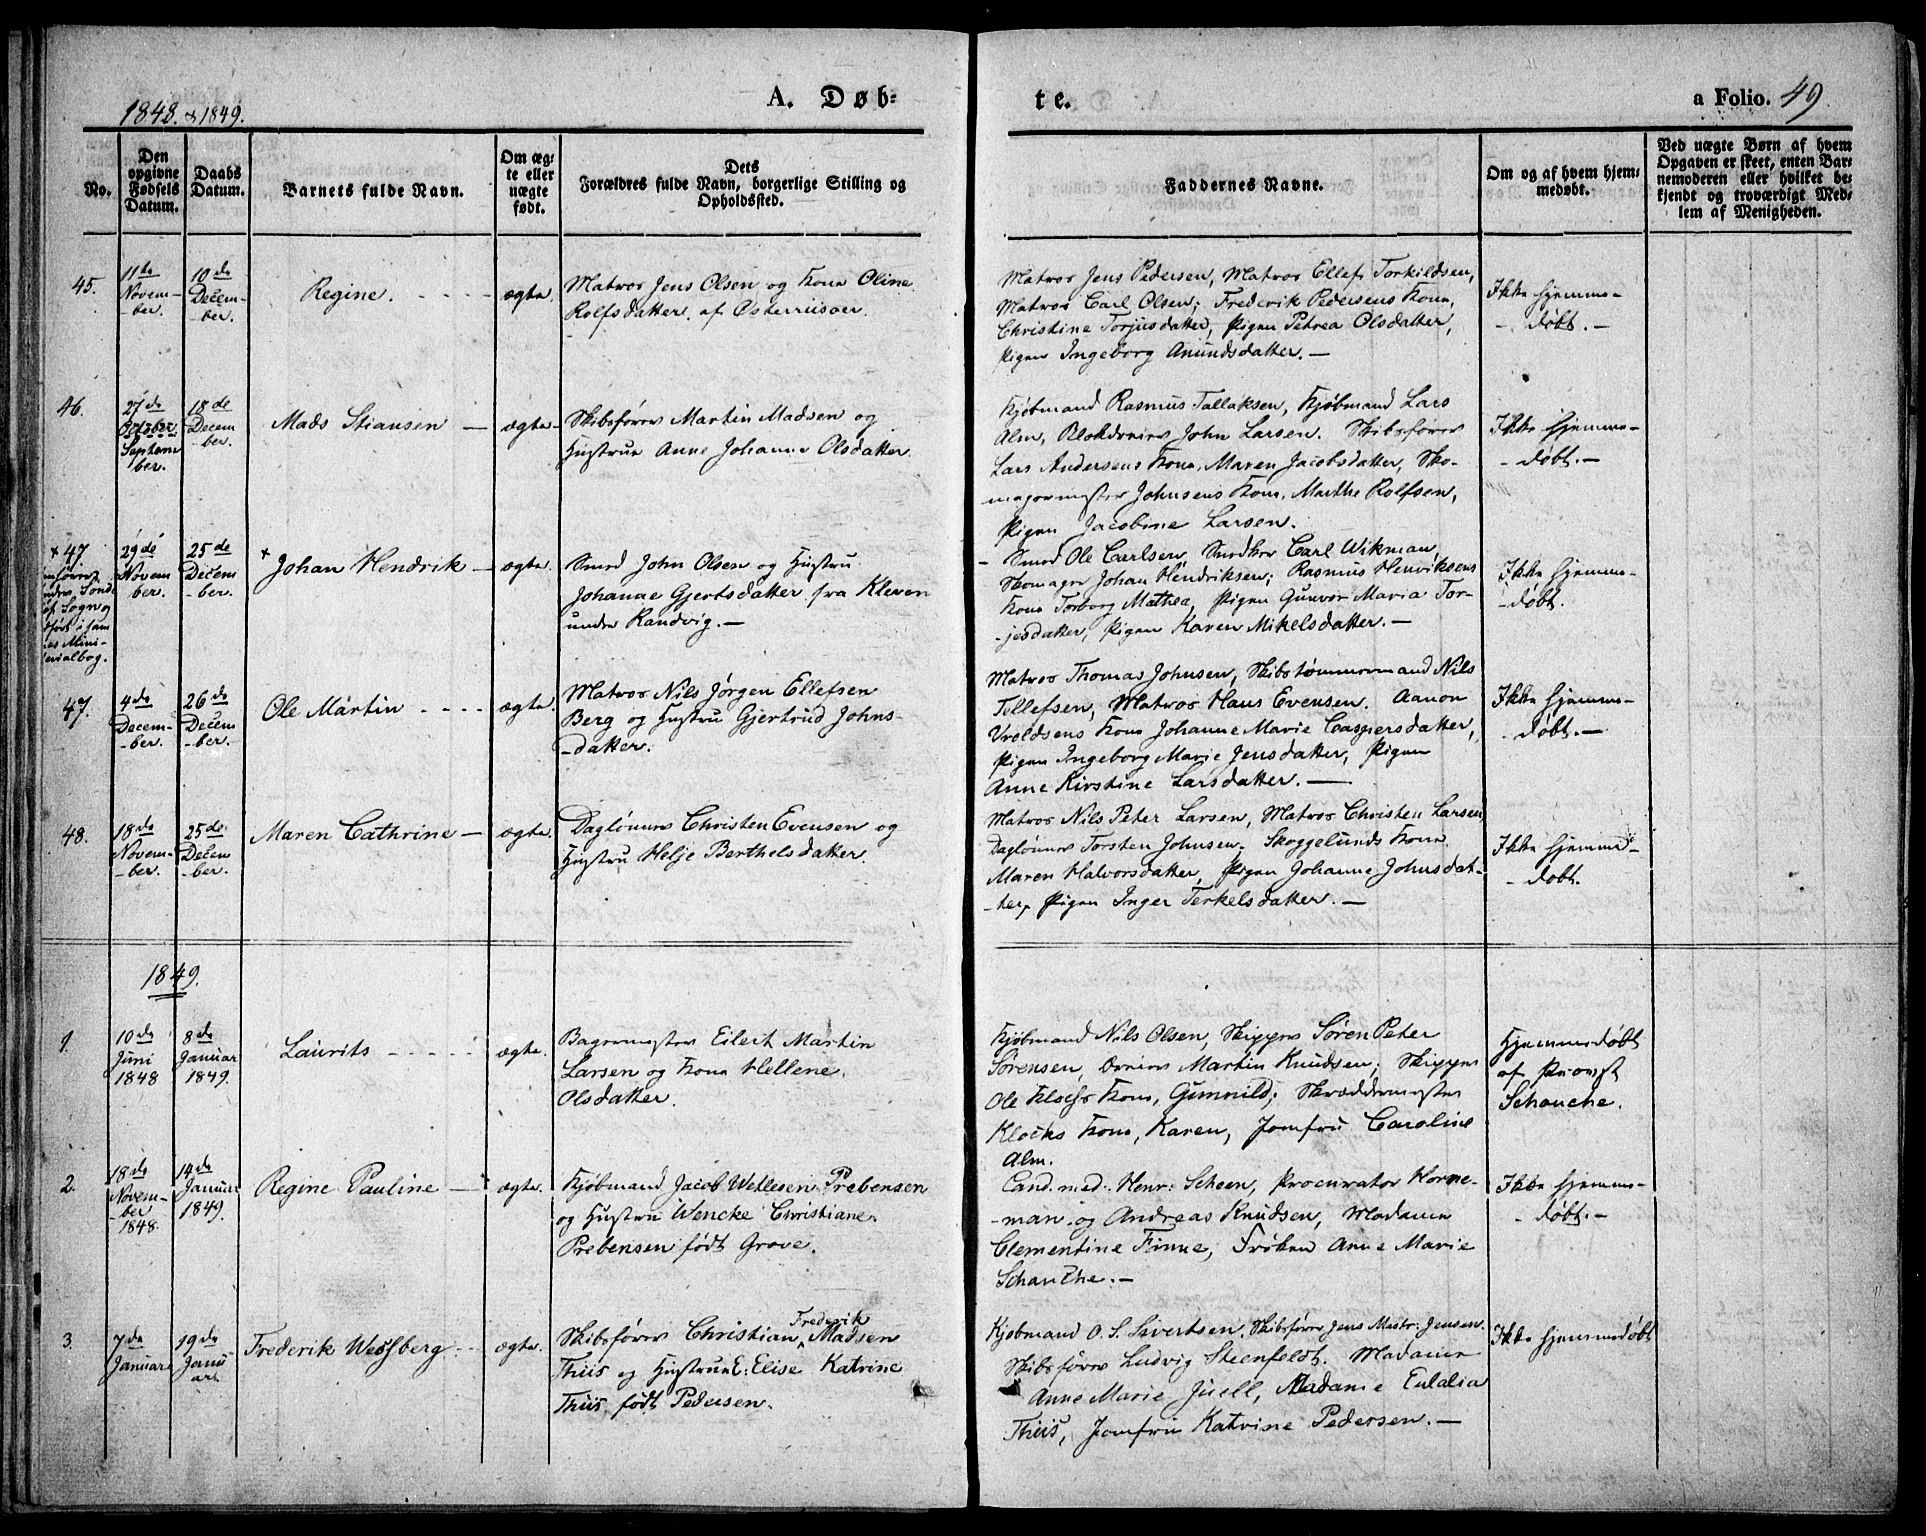 1848. & 1849.
A. Døb-
te.
a Folio. 49
No.
Den
opgivne
Fødsels
Datum.
Daabs
Datum.
Barnets fulde Navn.
Om æg-
te eller
uægte
født.
Dets
Forældres fulde Navn, borgerlige Stilling og
Opholdssted.
Faddernes Navne.
Om og af hvem hjem-
medøbt.
Ved uægte Børn af hvem
Opgaven er skeet, enten Bar-
nemoderen eller hvilket be-
kjendt og troværdigt Med-
lem af Menigheden.
45.
11te
Novem-
ber.
10de
Decem-
ber.
Regine.
ægte.
Matros Jens Olsen og Kone Oline
Rolfsdatter af Østerriisøer.
Matros Jens Pedersen, Matros Ellef Torkildsen,
Matros Carl Olsen; Frederik Pedersens Kone,
Christine Torjusdatter, Pigen Petrea Olsdatter,
Pigen Ingeborg Anundsdatter. —
Ikke hjemme-
- døbt. —
46.
27de
October
Septem
ber.
18de
Decem
ber.
Mads Stiansen —
ægte —
Skibsfører Martin Madsen og
Hustrue Anne Johanne Olsdatter.
Kjøbmand Rasmus Tallaksen, Kjøbmand Lars
Alm, Blokdreier John Larsen. Skibsfører
Lars Andersens Kone, Maren Jacobsdatter, Sko-
magermester Johnsens Kone, Marthe Rolfsen,
Pigen Jacobine Larsen.
Ikke hjemme-
- døbt. —
× 47
Sogn og
ført i sam
mes Mini-
sterialbog.
29de
Novem
ber.
25de
Decem
-ber.
× Johan Hendrik —
ægte.
Smed John Olsen og Hustru
Johanne Gjertsdatter fra Kleven
under Randvig. —
- Smed Ole Carlsen, Snedker Carl Wikman,
Skomager Johan Hendriksen; Rasmus Henriksens
Kone Torborg Mathea, Pigen Gunvor Maria Tor-
-jesdatter, Pigen Karen Mikelsdatter. —
Ikke hjemme-
-døbt.
47.
4de
Decem-
-ber.
26de
Decem
-ber.
Ole Martin
ægte.
Matros Nils Jørgen Ellefsen
Berg og Hustru Gjertrud Johns-
-datter.
Matros Thomas Johnsen, Skibstømmermand Nils
Tellefsen, Matros Hans Evensen. Aanon
Vroldsens Kone Johanne Marie Caspersdatter,
Pigen Ingeborg Marie Jensdatter, Pigen
Anne Kirstine Larsdatter. —
Ikke hjemme-
- døbt. —
48.
18de
Novem-
ber.
25de
Decem
ber.
Maren Cathrine —
ægte.
Daglønner Christen Evensen og
Hustru Helje Berthelsdatter.
Matros Nils Peter Larsen, Matros Christen Larsen
Daglønner Torsten Johnsen. Skoggelunds Kone
Maren Halvorsdatter, Pigen Johanne Johnsdat-
-ter, Pigen Inger Terkelsdatter. —
Ikke hjemme-
- døbt.
1849.
1.
10de
Juni
1848
8de
Januar
1849.
Laurits
ægte.
Bagermester Eilert Martin
Larsen og Kone Hellene
Olsdatter.
Kjøbmand Nils Olsen, Skipper Søren Peter
Sørensen, Dreier Martin Knudsen; Skipper
Ole Klochs Kone, Gunnild; Skræddermester
Klocks Kone, Karen, Jomfru Caroline
Alm.
Hjemmedøbt
af Provst
Schanche.
2.
18de
Novem-
-ber
1848.
14de
Januar
1849.
Regine Pauline —
ægte.
Kjøbmand Jacob Wetlesen Prebensen
og Hustru Wencke Christiane
Prebensen født Grove.
Cand. med: Henr: Scheen, Procurator Horne-
-man og Andreas Knudsen, Madame
Clementine Finne, Frøken Anne Marie
Schanche. —
Ikke hjemme-
- døbt. —
3.
7de
Januar
19de
Janu
ar
Frederik Weisberg
ægte.
Skibsfører Christian Frederik Madsen
Thiis og Hustrue E: Elise Katrine
Thiis, født Pedersen.
Kjøbmand O. S. Sivertsen. Skibsfører Jens Mastr: Jensen.
Skibsfører Ludvig Steenfeldt. Madame
Anne Marie Juell, Madame Eulalia
Thiis, Jomfru Katrine Pedersen. —
Ikke hjemmedøbt